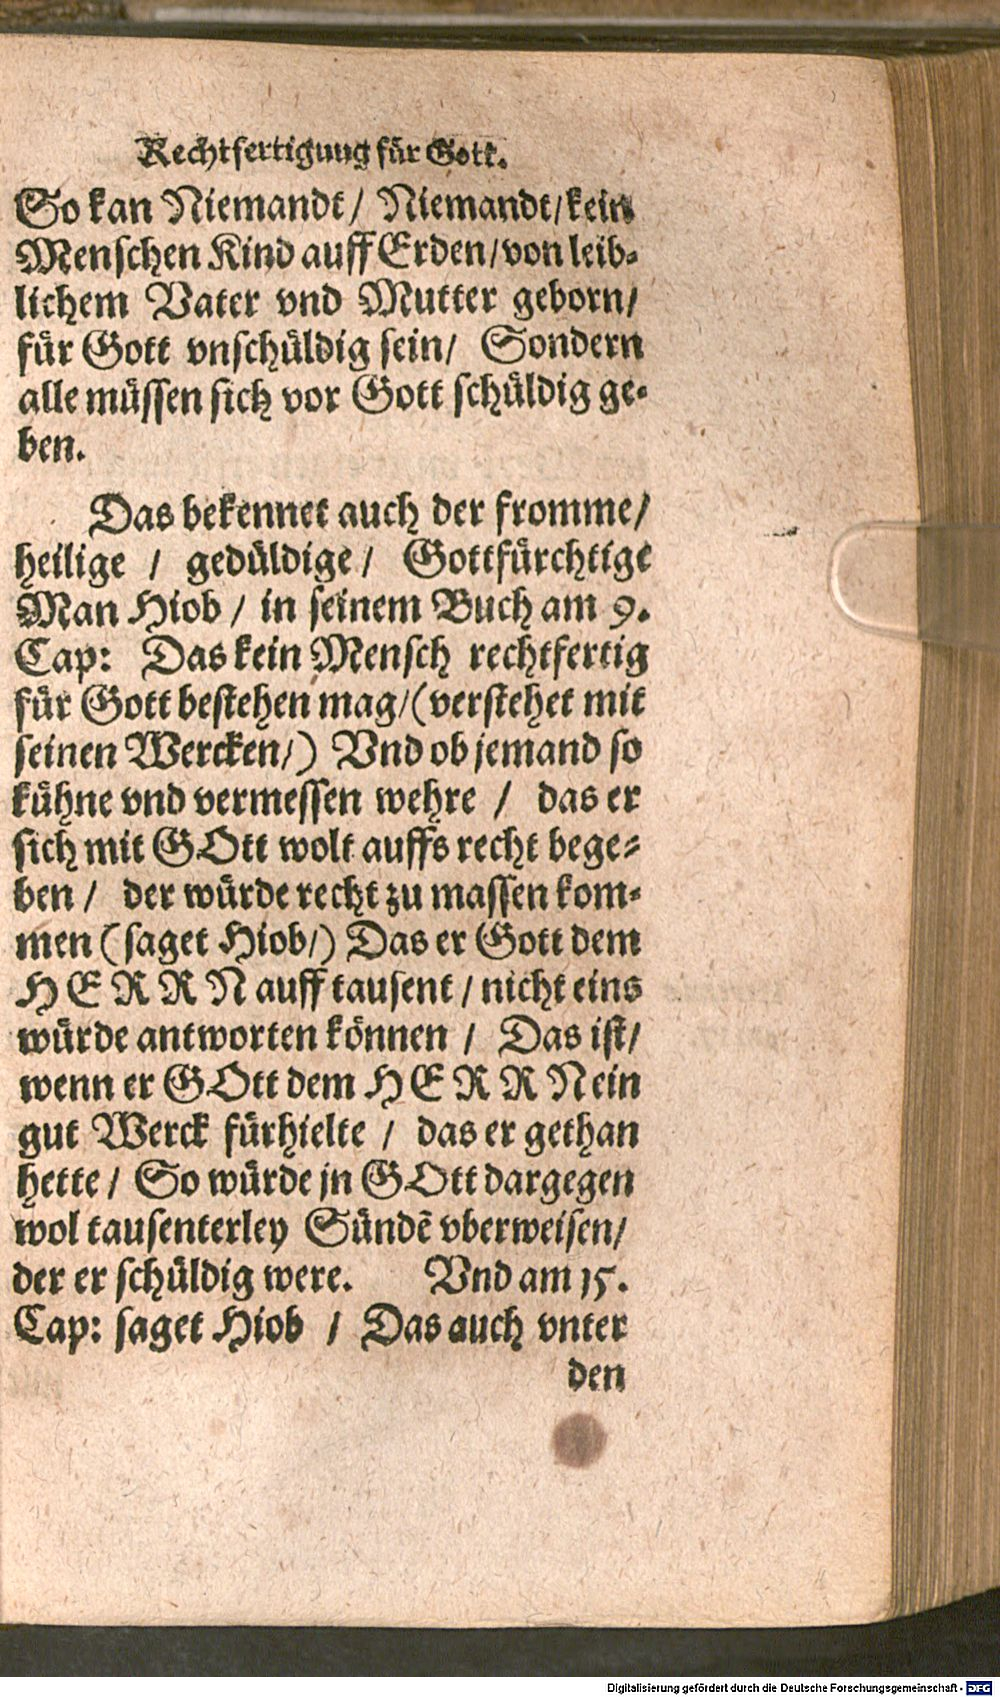 Rechtfertigung für Gott.
So kan Niemandt / Niemandt / kein
Menschen Kind auff Erden / von leib-
lichem Vater vnd Mutter geborn /
für Gott vnschüldig sein / Sondern
alle müssen sich vor Gott schüldig ge-
ben.
Das bekennet auch der fromme /
heilige / gedüldige / Gottfürchtige
Man Hiob / in seinem Buch am 9.
Cap: Das kein Mensch rechtfertig
für Gott bestehen mag / (verstehet mit
seinen Wercken /) Vnd ob jemand so
kühne vnd vermessen wehre / das er
sich mit GOtt wolt auffs recht bege-
ben / der würde recht zu massen kom-
men (saget Hiob /) Das er Gott dem
HERRN auff tausent / nicht eins
würde antworten können / Das ist /
wenn er GOtt dem HERRN ein
gut Werck fürhielte / das er gethan
hette / So würde jn GOtt dargegen
wol tausenterley Sündẽ vberweisen /
der er schüldig were. Vnd am 15.
Cap: saget Hiob / Das auch vnter
den
Digitalisierung gefördert durch die Deutsche Forschungsgemeinschaft - DFG